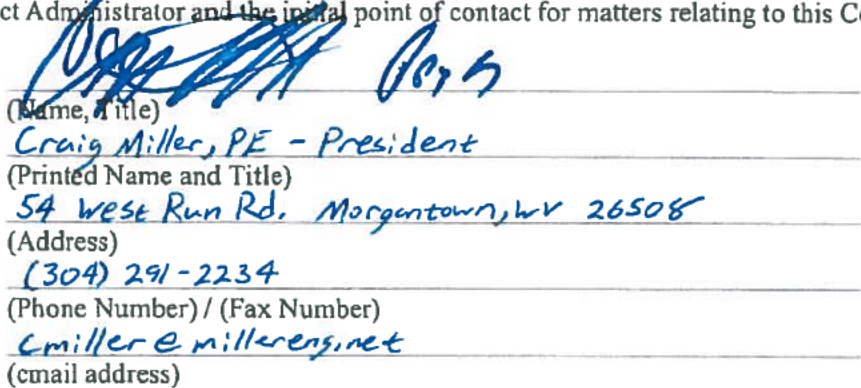 ct Administrator and the initial point of contact for matters relating to this Co
(Name, Title)
Craig Miller, PE - President
(Printed Name and Title)
54 West Run Rd. Morgantown, WV 26508
(Address)
(304) 291-2234
(Phone Number) / (Fax Number)
cmiller@millereng.net
(email address)